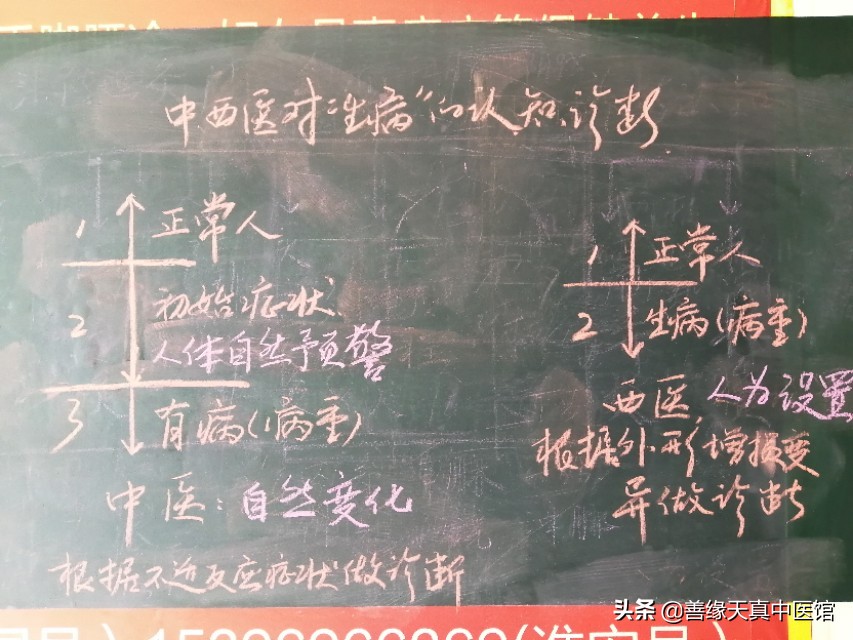 中西医对"准病"的认知、诊断
1 正常人
2 初始症状
人体自然预警
3 有病(病重)
中医:自然变化
根据不适反应症状做诊断
1 正常人
2 生病(病重)
西医,人为设置
根据外形增损变
异做诊断
头条 @善缘天真中医馆